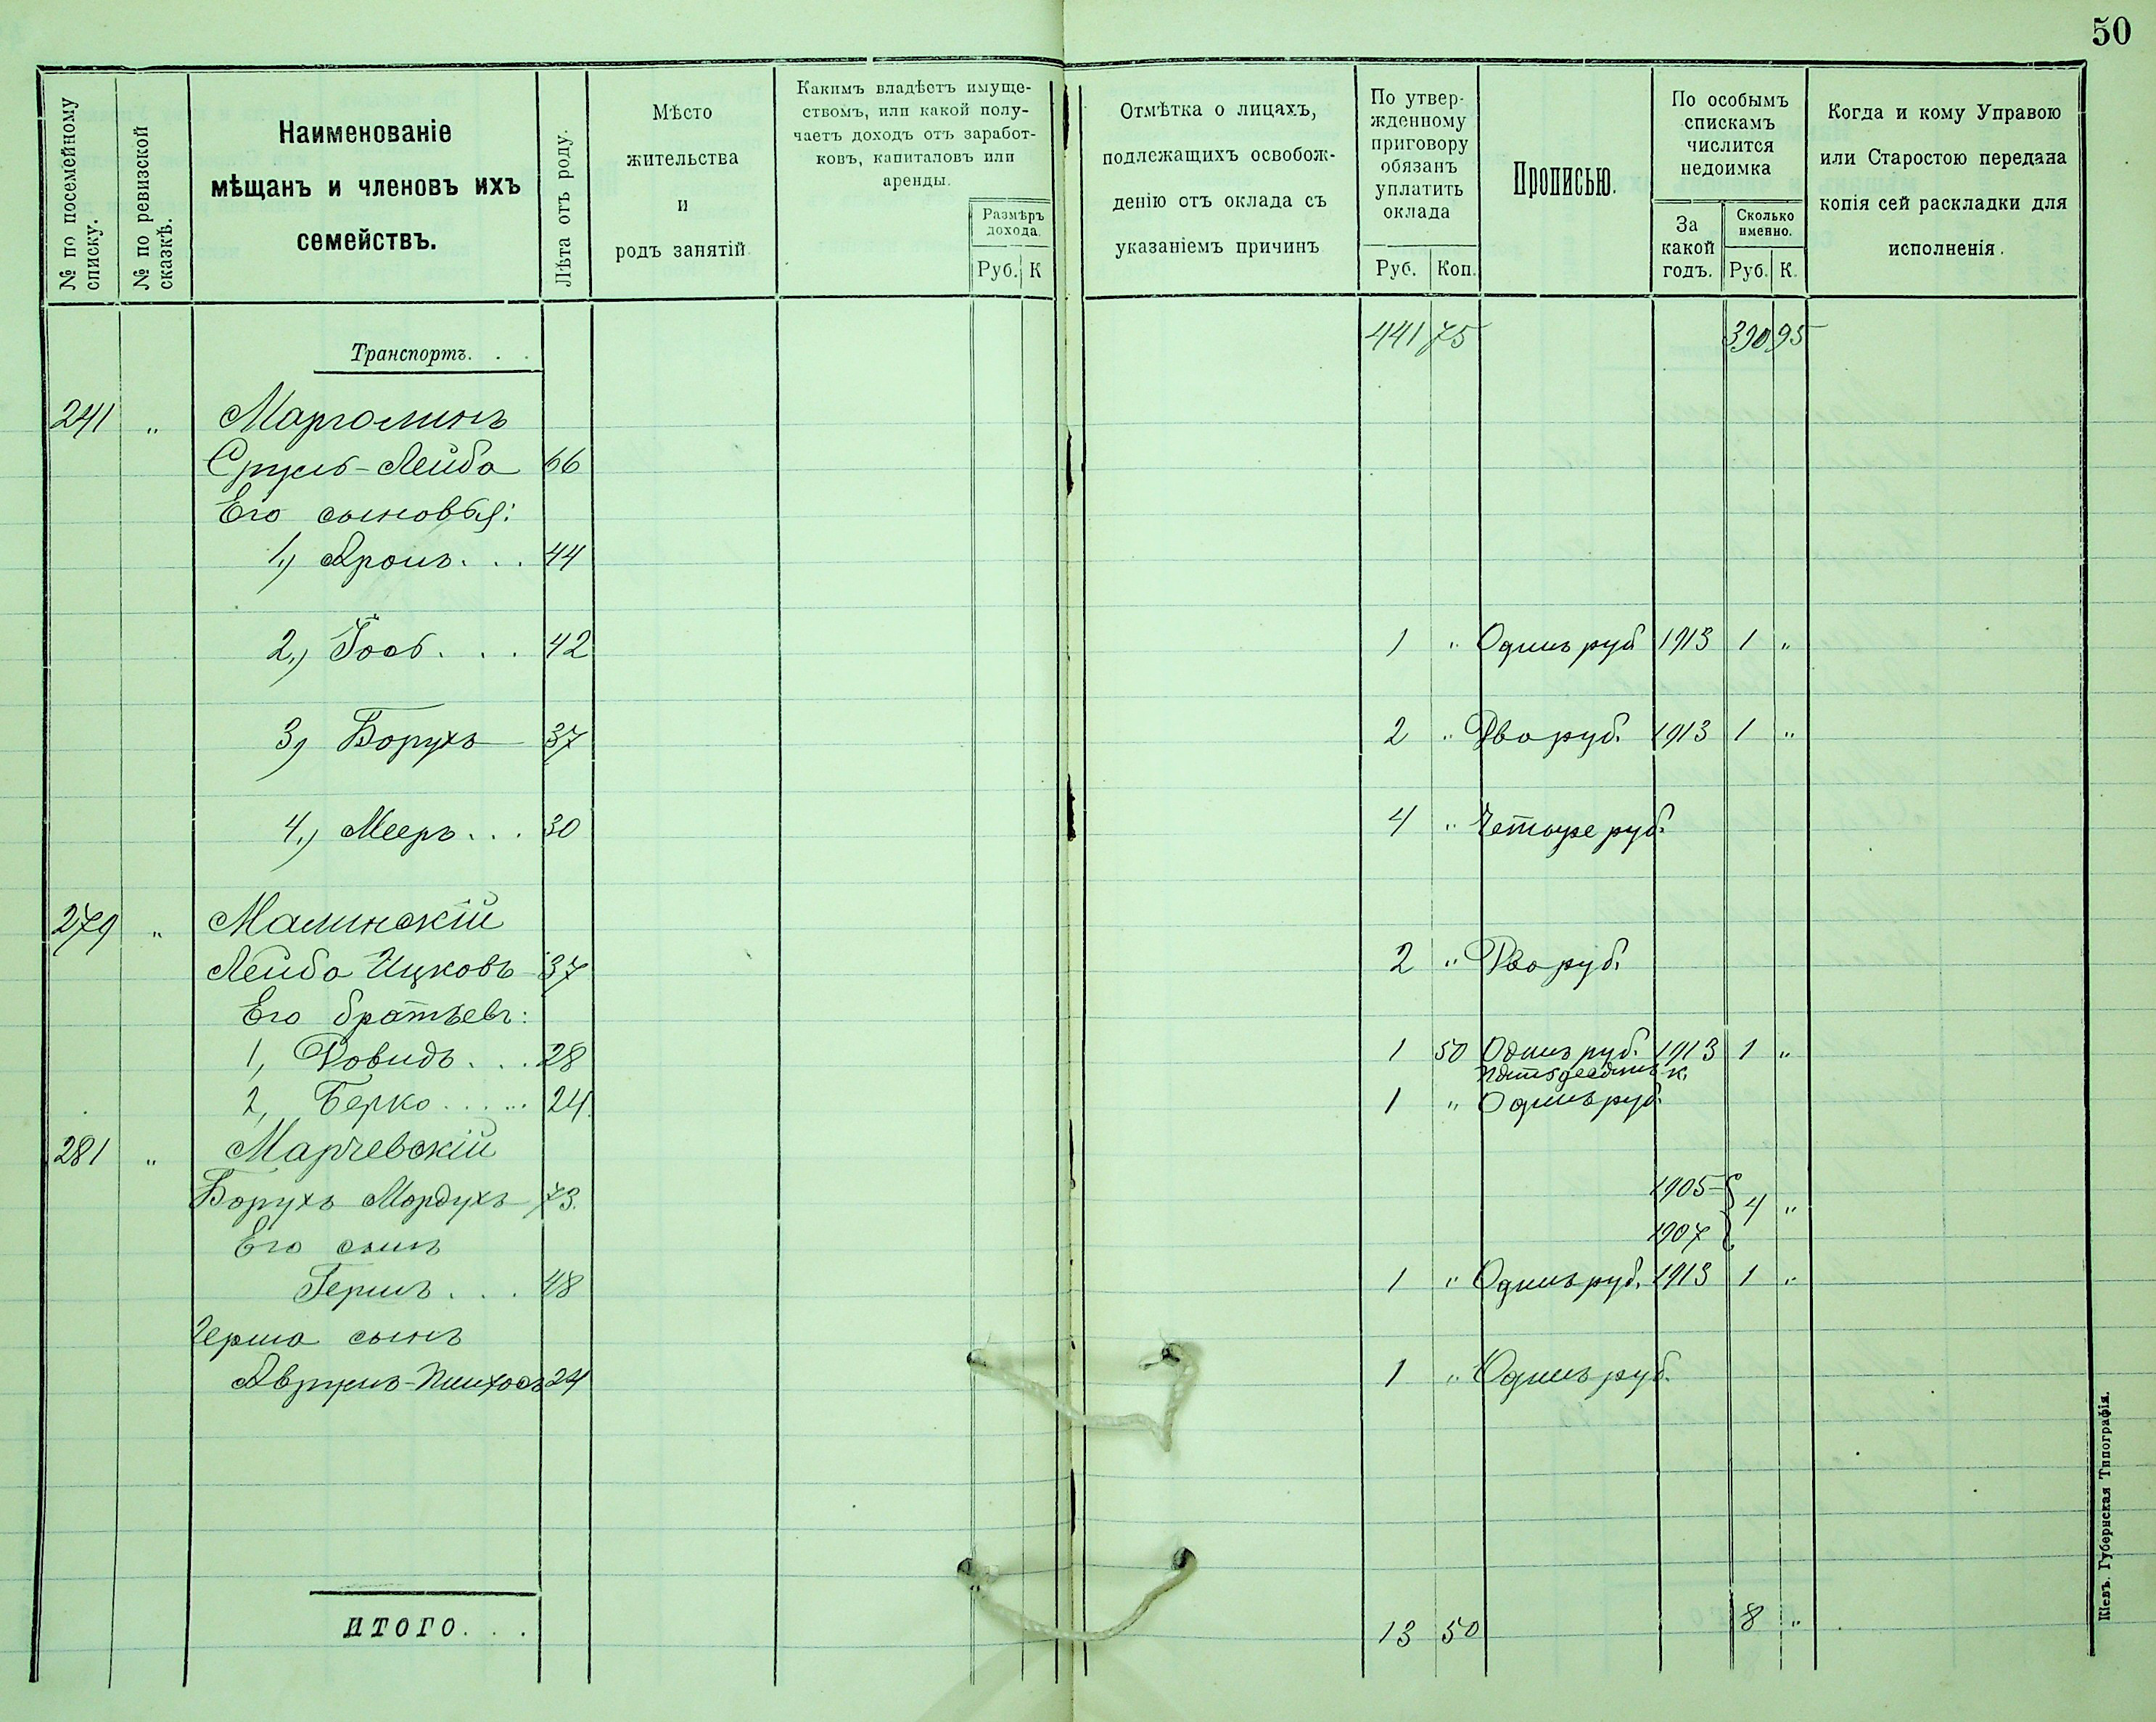 50
№ по посемейному списку.
№ по ревизской сказкѣ.
Наименованіе
мѣщанъ и членовъ ихъ
семействъ.
Лѣта отъ роду.
Мѣсто
жительства
и
родъ занятій.
Какимъ владѣетъ имуще-
ствомъ, или какой полу-
чаетъ доходъ отъ заработ-
ковъ, капиталовъ или
аренды.
Размѣръ
дохода.
Руб. К
Отмѣтка о лицахъ,
подлежащихъ освобож-
денію отъ оклада съ
указаніемъ причинъ
По утвер-
жденному
приговору
обязанъ
уплатить
оклада
Руб. Коп.
Прописью.
По особымъ
спискамъ
числится
недоимка
За
какой
годъ.
Сколько
именно.
Руб. К.
Когда и кому Управою
или Старостою передана
копія сей раскладки для
исполненія.
Транспортъ. . . 441 75 390 95
241 " Марголинъ
Сруль-Лейба 66
Его сыновья:
1,) Аронъ. . . 44
2,) Іось. . . 42 1 " Одинъ руб 1913 1 "
3, Борухъ 37 2 " Два руб. 1913 1 "
4,) Мееръ. . . 30 4 " Четыре руб.
279 " Малинскій
Лейба Ицковъ 37 2 " Два руб.
Его братьевъ:
1, Довидъ. . . 28 1 50 Одинъ руб. 1913 1 "
пятьдесятъ к.
2, Берко. . . . . 24. 1 " Одинъ руб.
281 " Марчевскій
Борухъ Мордухъ 73. 1905 4 "
Его сынъ 1907
Гершъ. . . 48 1 " Одинъ руб. 1913 1 "
Герша сынъ
Аврумъ-Пинхосъ 24 1 " Одинъ руб.
ИТОГО. . . 13 50 8 "
Кіевъ. Губернская Типографія.